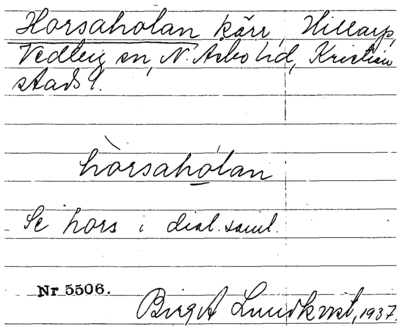 Horsaholan kärr, Hillarp,
Vedby sn, N. Åsbo hd, Kristian
stads l.
hòrsaho̲lan
Se hors i dial. saml.
Nr 5506.
Birgit Lundkvist, 1937.